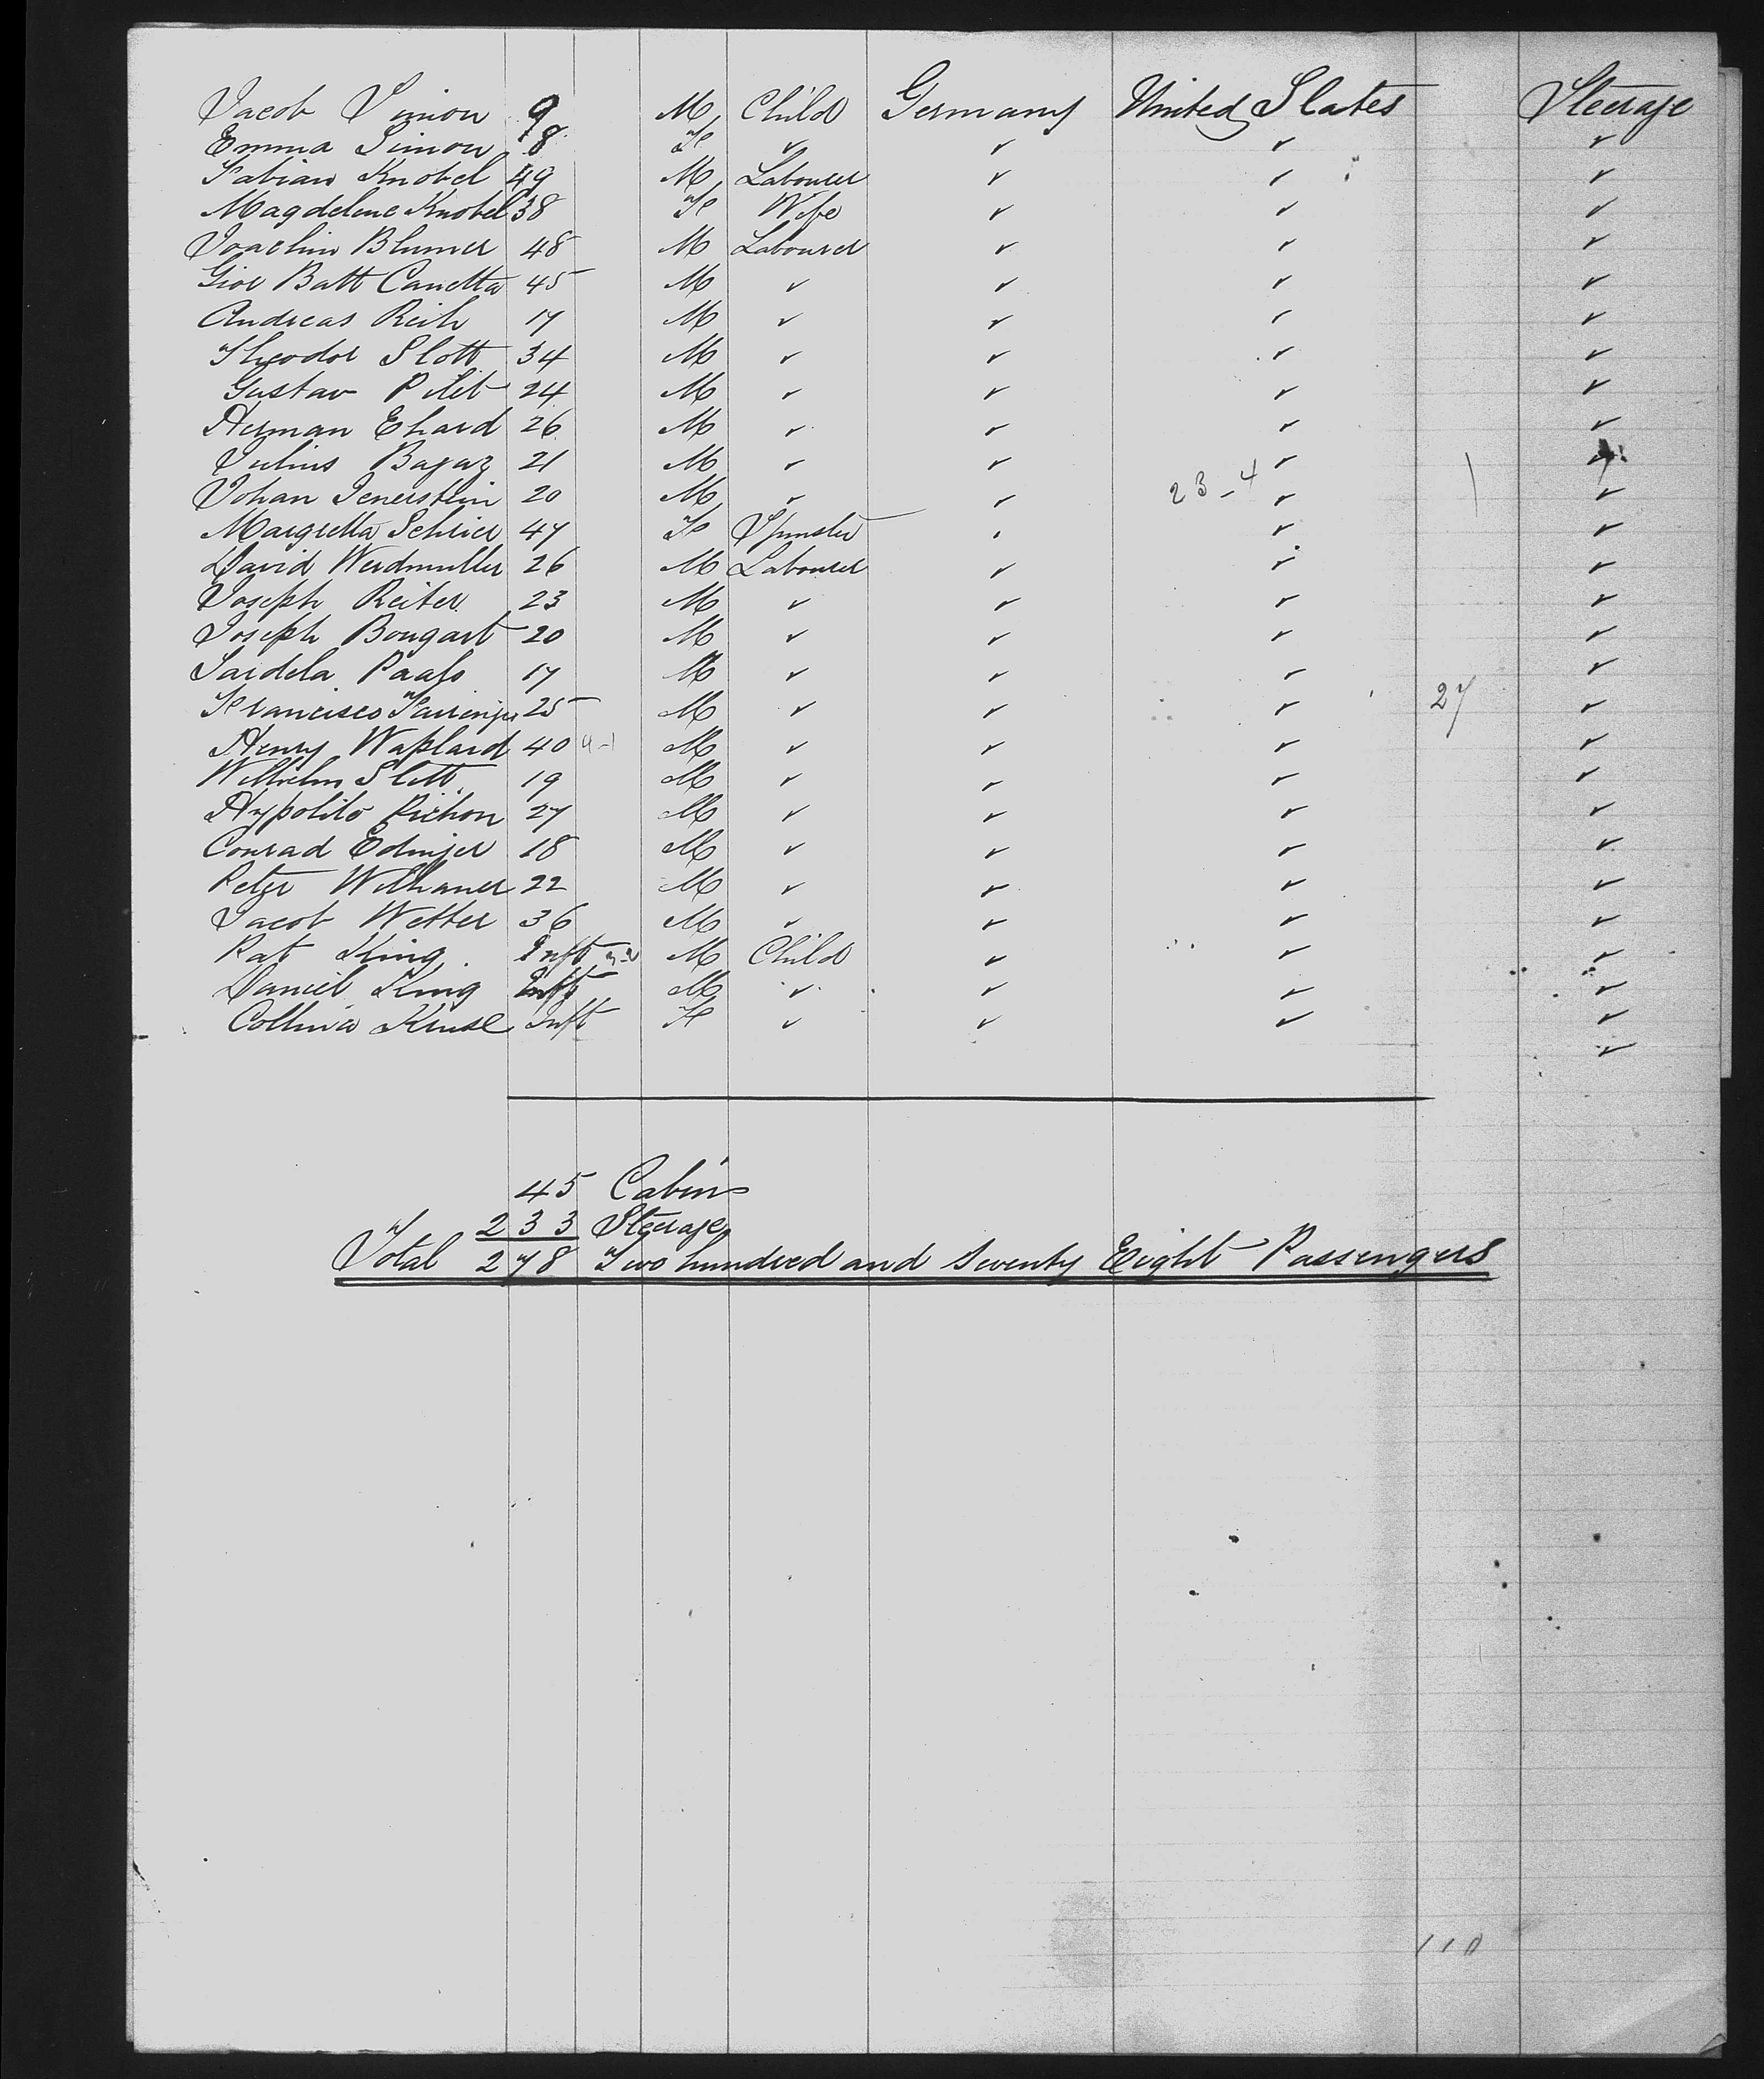 Jacob Simon 9 M Child Germany United States Steerage
Emma Simon 8 F ✓ ✓ ✓ ✓
Fabian Knobel 49 M Labourer ✓ ✓ ✓
Magdelene Knobel 38 F Wife ✓ ✓ ✓
Joachim Blumer 48 M Labourer ✓ ✓ ✓
Gior Batt Canetta 45 M ✓ ✓ ✓ ✓
Andreas Reih 17 M ✓ ✓ ✓ ✓
Theodor Slott 34 M ✓ ✓ ✓ ✓
Gustav Pilet 24 M ✓ ✓ ✓ ✓
Herman Ehard 26 M ✓ ✓ ✓ ✓
Julius Bagaz 21 M ✓ ✓ ✓ ✓
Johan 20 M ✓ ✓ 23-4 ✓ ✓
Margretta Schrier 47 F Spinster ✓ ✓
David Werdmuller 26 M Labourer ✓ ✓ ✓
Joseph Reiter 23 M ✓ ✓ ✓ ✓
Joseph Bongart 20 M ✓ ✓ ✓ ✓
Sardela 17 M ✓ ✓ ✓ ✓
Francisco 25 M ✓ ✓ ✓ 27 ✓
Henry 40 M ✓ ✓ ✓ ✓
Wilhelm Slett 19 M ✓ ✓ ✓ ✓
Hypolito Pichon 27 M ✓ ✓ ✓ ✓
Conrad Edinjer 18 M ✓ ✓ ✓ ✓
Peter Withaner 22 M ✓ ✓ ✓ ✓
Jacob Wetter 36 M ✓ ✓ ✓ ✓
Pat King Inft M Child ✓ ✓ ✓
Daniel King Inft M ✓ ✓ ✓ ✓
Kruse Inft F ✓ ✓ ✓ ✓
✓
45 Cabin
233 Steerage
Total 278 Two hundred and seventy Eight Passengers
110